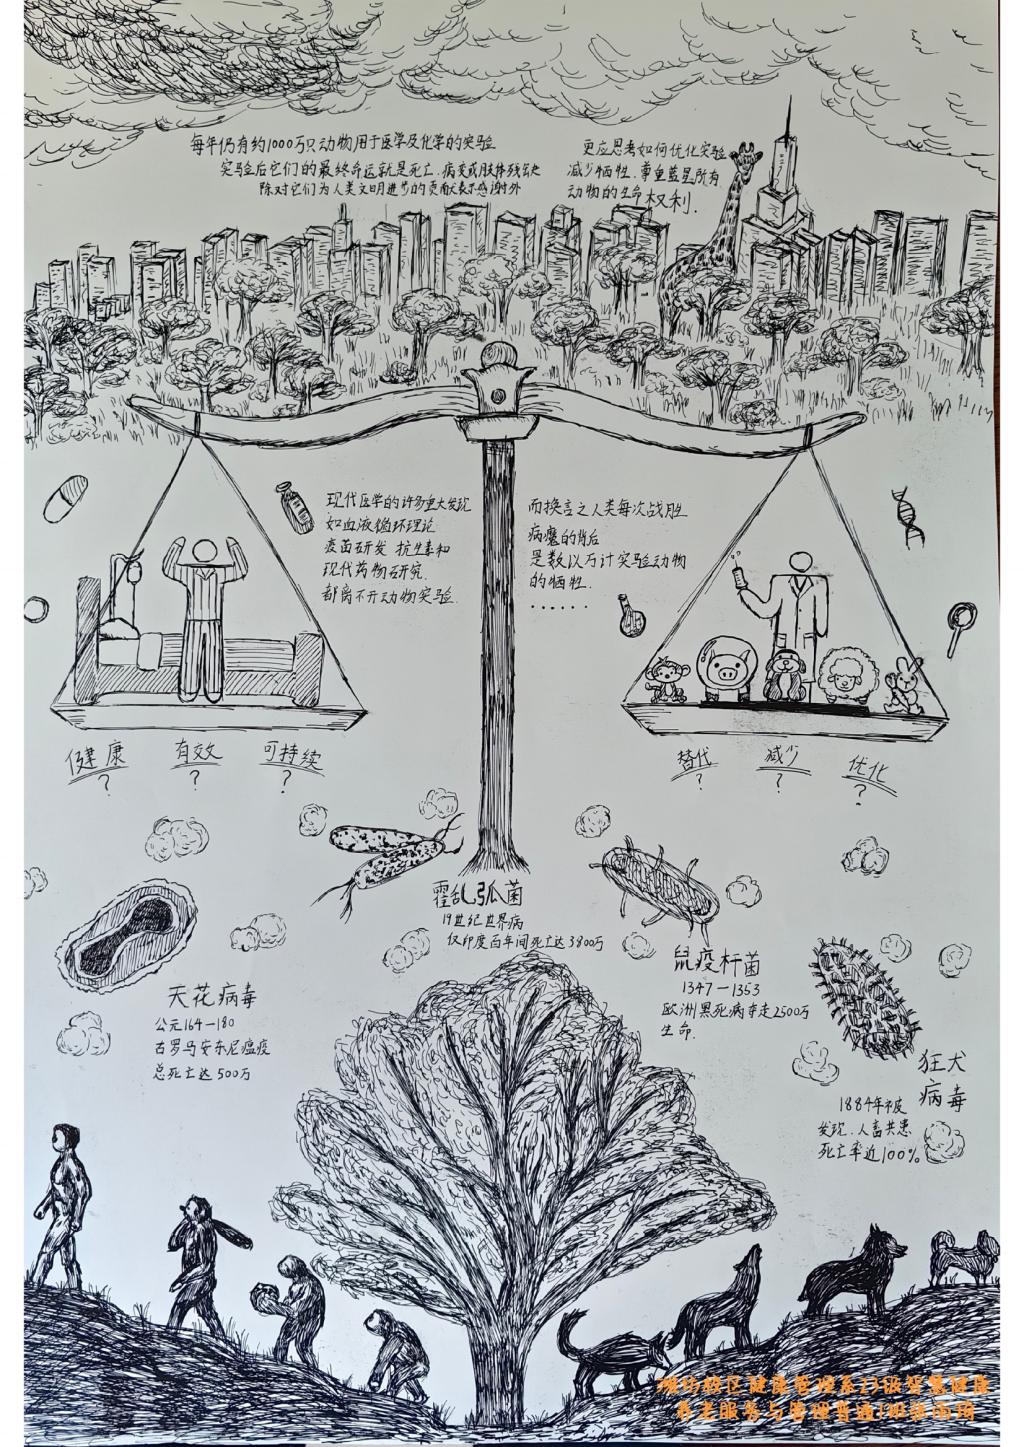 每年仍有约1000万只动物用于医学及化学的实验
实验后它们的最终命运就是死亡、病变或肢体残缺
除对它们为人类文明进步的贡献表示感谢外
更应思考如何优化实验
减少牺牲、尊重蓝星所有
动物的生命权利.
现代医学的许多重大发现
如血液循环理论
疫苗研发 抗生素和
现代药物研究.
都离不开动物实验.
而换言之人类每次战胜
病魔的背后
是数以万计实验动物
的牺牲.
······
健康 有效 可持续
? ? ?
替代 减少 优化
? ? ?
霍乱弧菌
19世纪世界病
仅印度百年间死亡达3800万
鼠疫杆菌
1347—1353
欧洲黑死病夺走2500万
生命.
天花病毒
公元164—180
古罗马安东尼瘟疫
总死亡达500万
狂犬
病毒
1884年被
发现.人畜共患
死亡率近100%
潍坊校区健康管理系23级智慧健康
养老服务与管理普通1班张雨